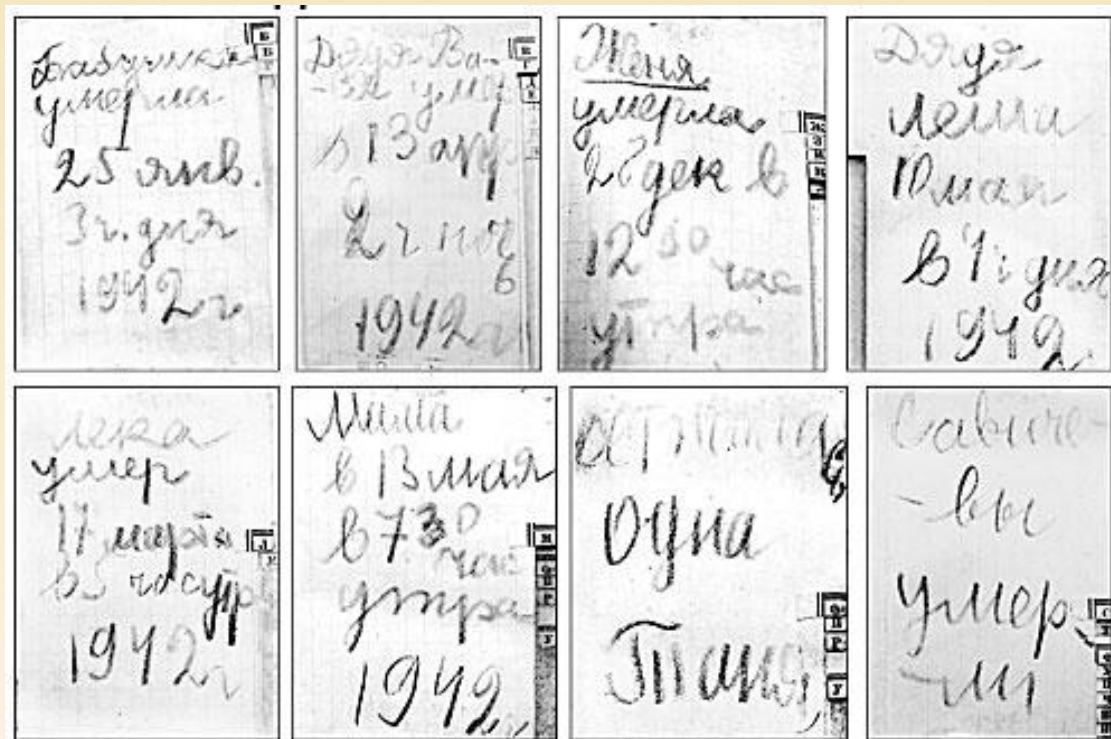 Бабушка
умерла
25 янв.
3 ч. дня
1942 г
Дядя Ва-
-ся умер
в 13 апр
2 ч ноч
6
1942 г
Женя
умерла
28 дек в
12 30 час
утра
Дядя
Леша
10 мая
в 4 ч дня
1942 г
Лека
умер
17 марта
в 5 час утр
1942 г
Мама
в 13 мая
в 7 30
час
утра
1942 г
Осталась
одна
Таня
Савиче-
-вы
умер-
-ли